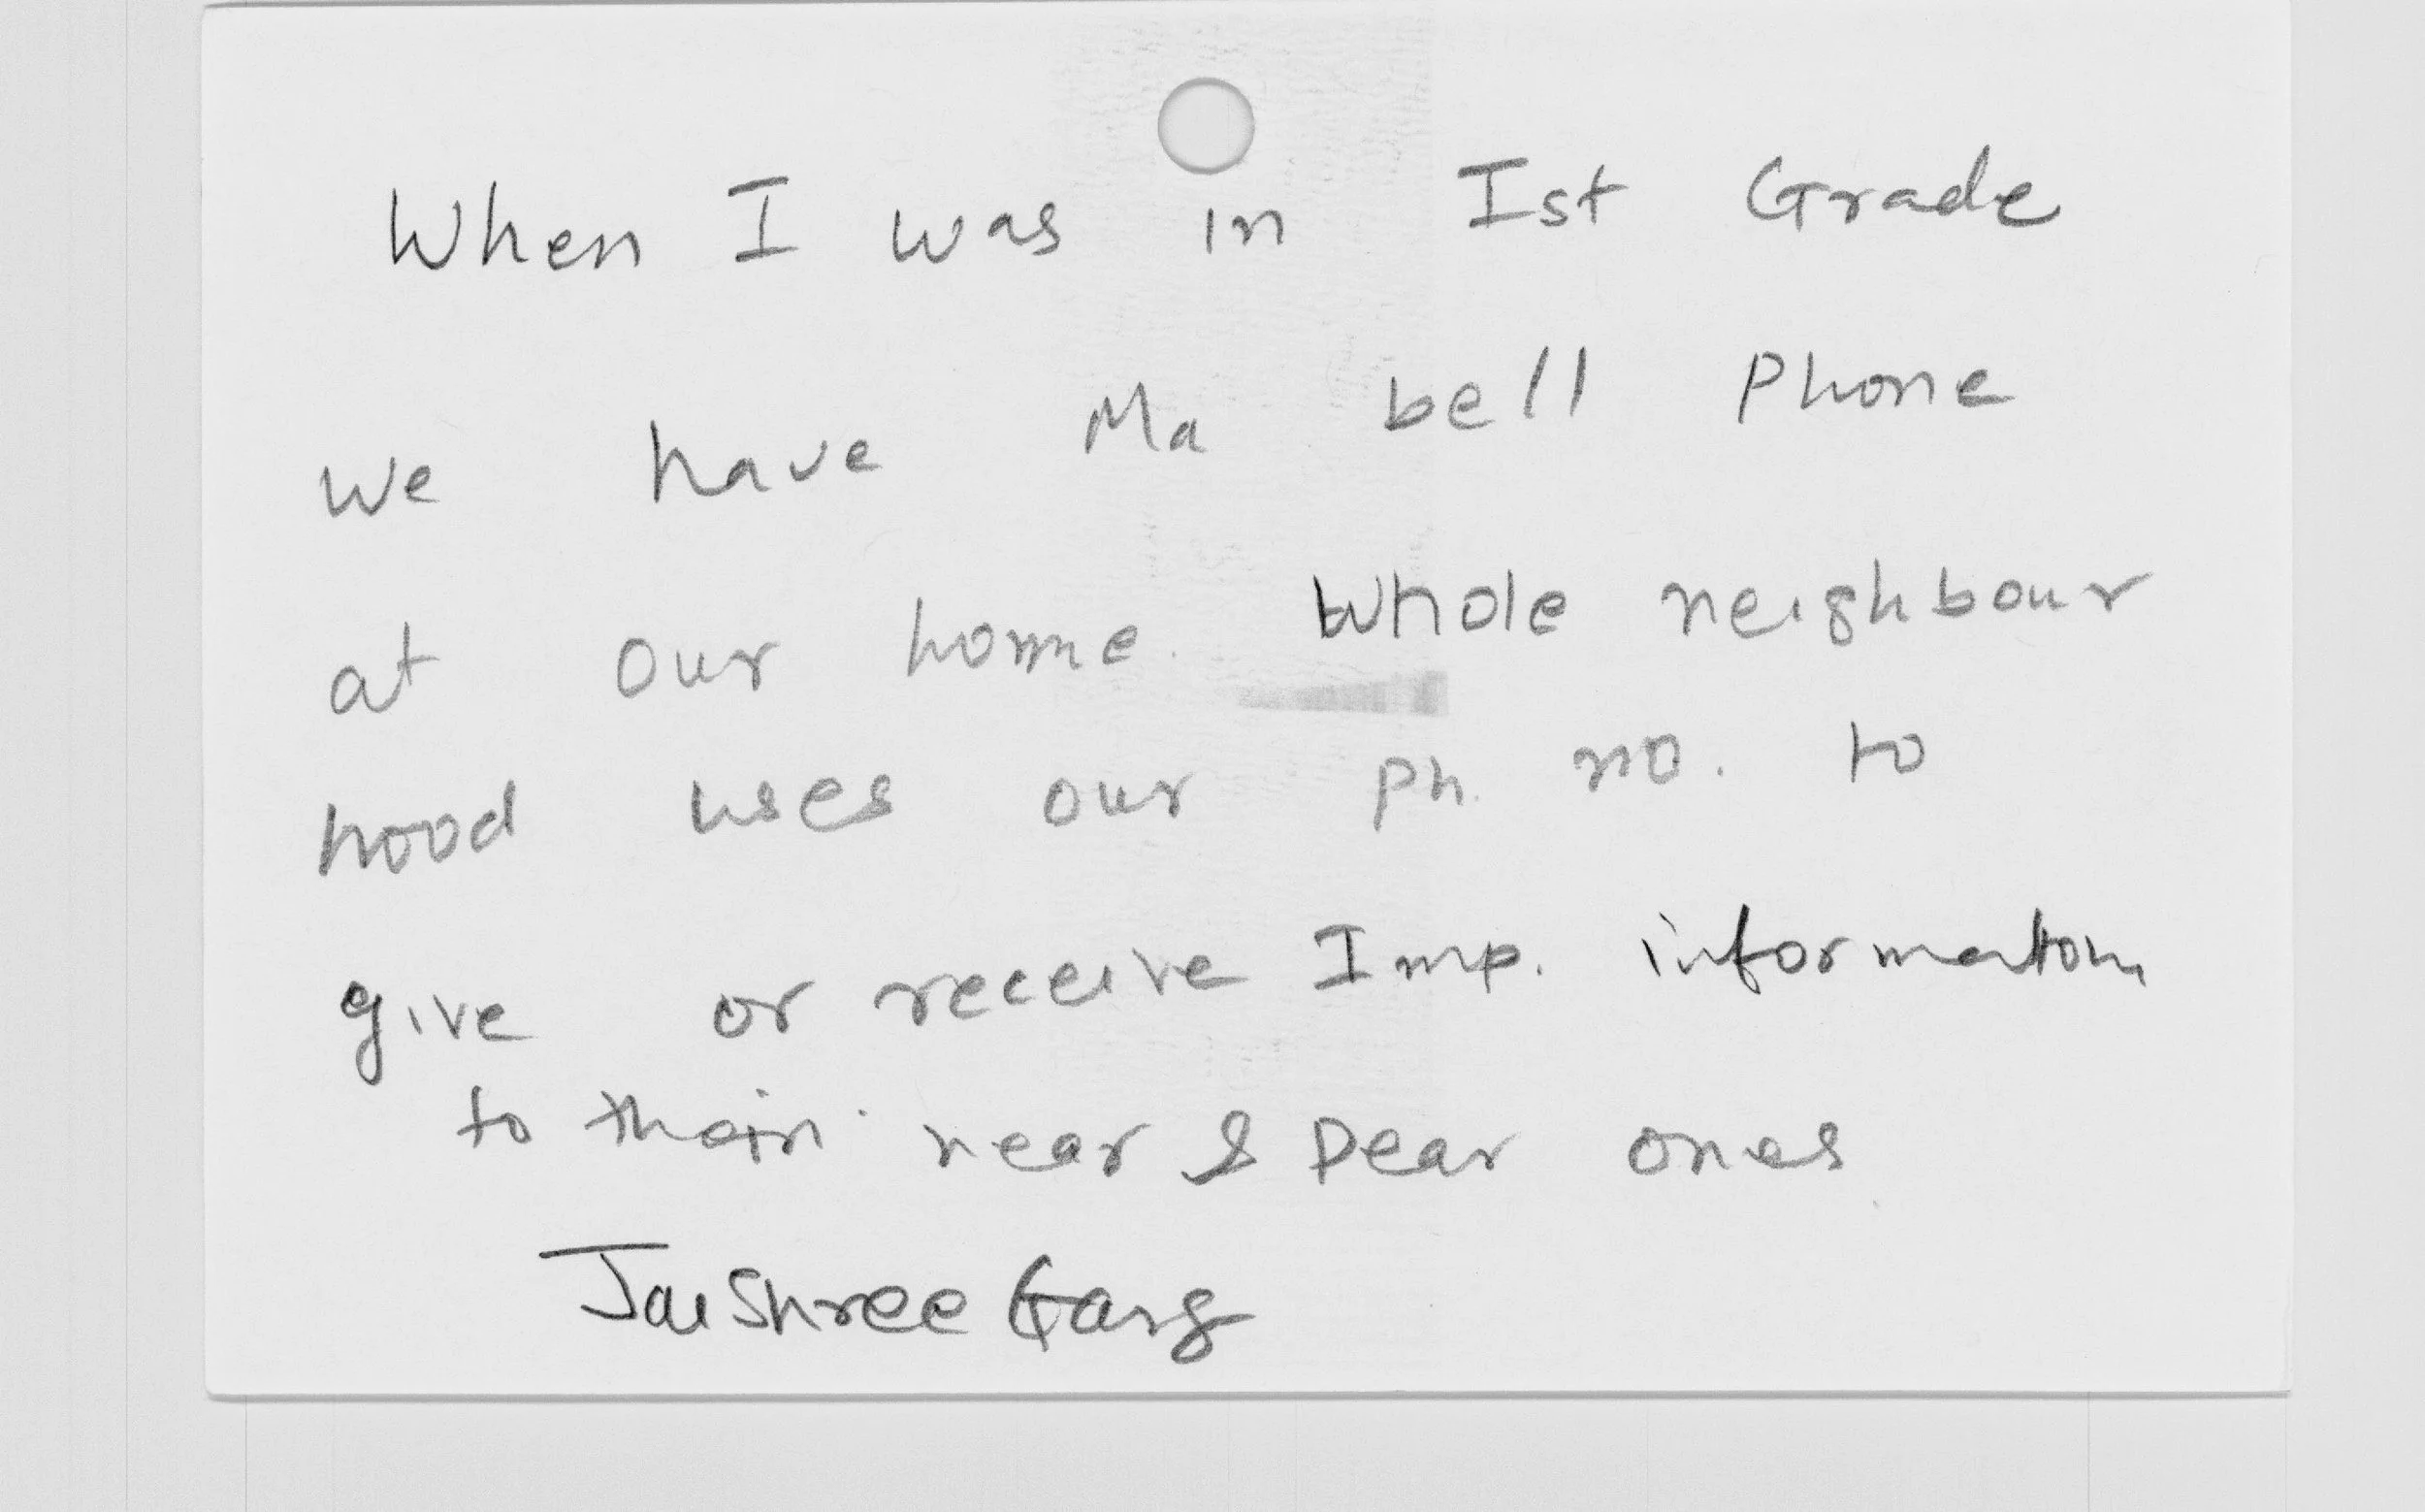 When I was in Ist Grade
we have Ma bell Phone
at our home. Whole neighbour
hood uses our Ph. no. to
give or receive Imp. information
to their near & Dear ones
JaiShree Garg